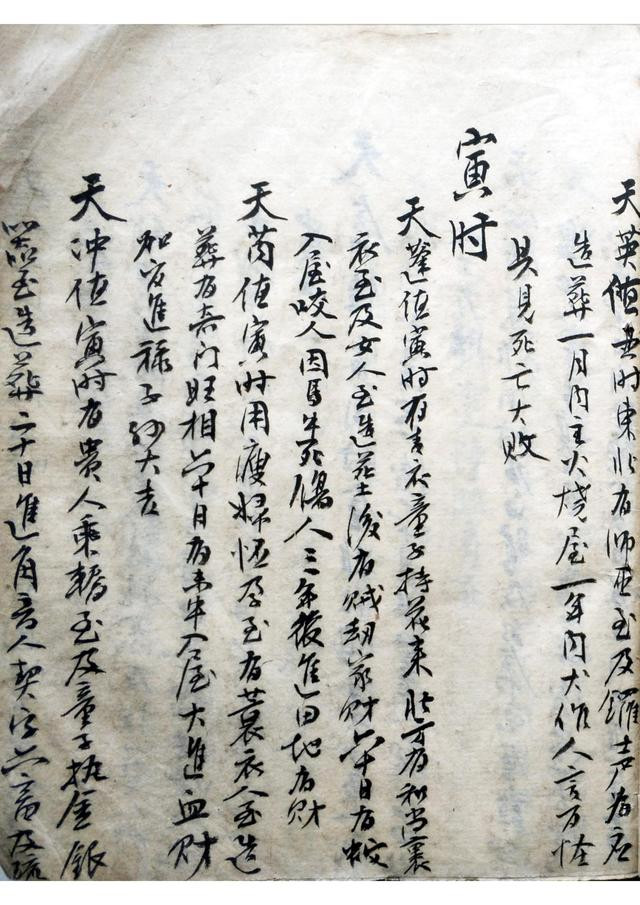 天英值丑时東北有师巫至及鑼声为应
造葬一月内主火烧屋一年内犬作人言万怪
具見死亡大败
寅时
天蓬值寅时有青衣童子持花来北方有和尚裹
衣至及女人至造葬后有贼劫家财六十日有蛇
入屋咬人因馬牛死傷人三年後進田地有财
天芮值寅时用瘦婦怀孕至有蓑衣人至造
葬有喜门旺相六十日有赤牛入屋大進血财
加官進禄子孙大吉
天冲值寅时有貴人乘轎至及童子执金銀
器至造葬六十日進角音人契字六畜及